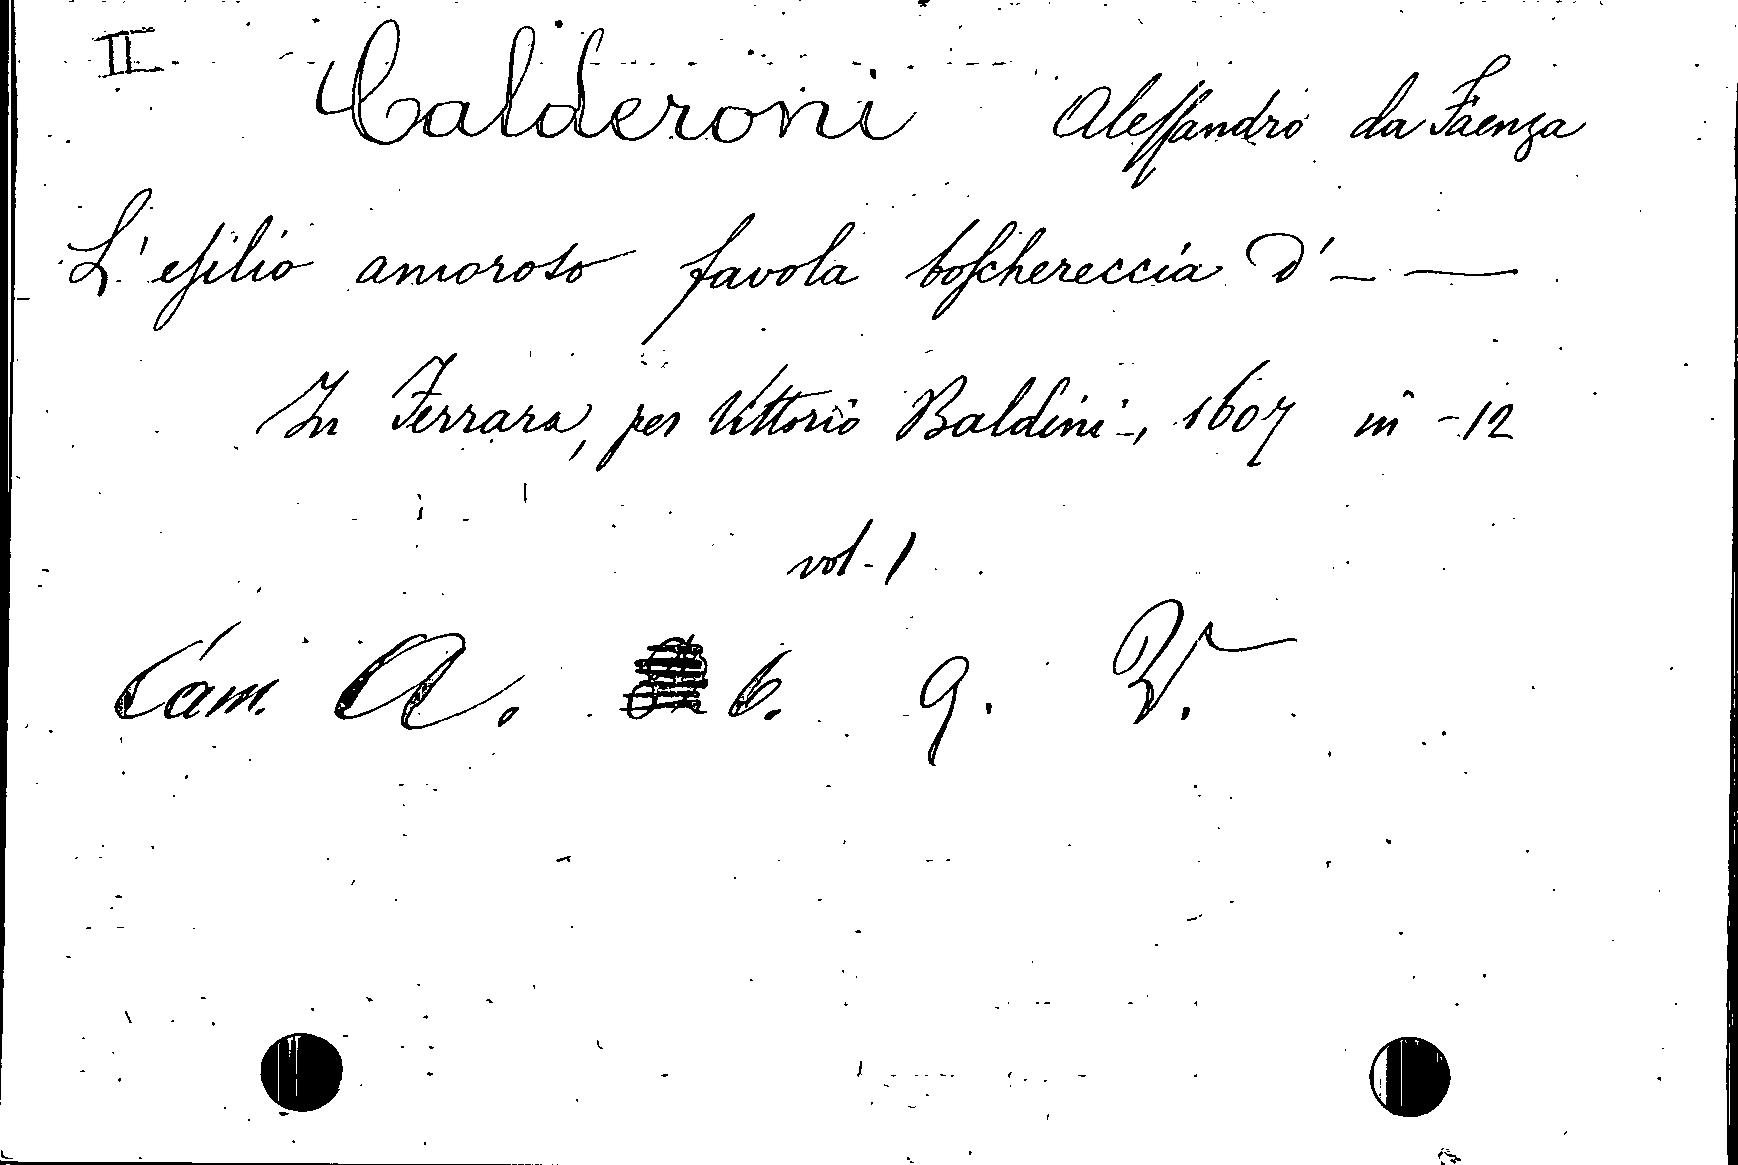 II Calderoni Alessandro da Faenza
L'esilio amoroso favola boschereccia d' — —
In Ferrara, per Vittorio Baldini, 1607 in-12
vol. 1
Cam. A. 6. 9. V.